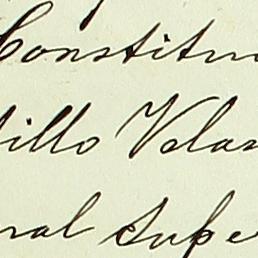 Constitu
illo Velas
ral Supe